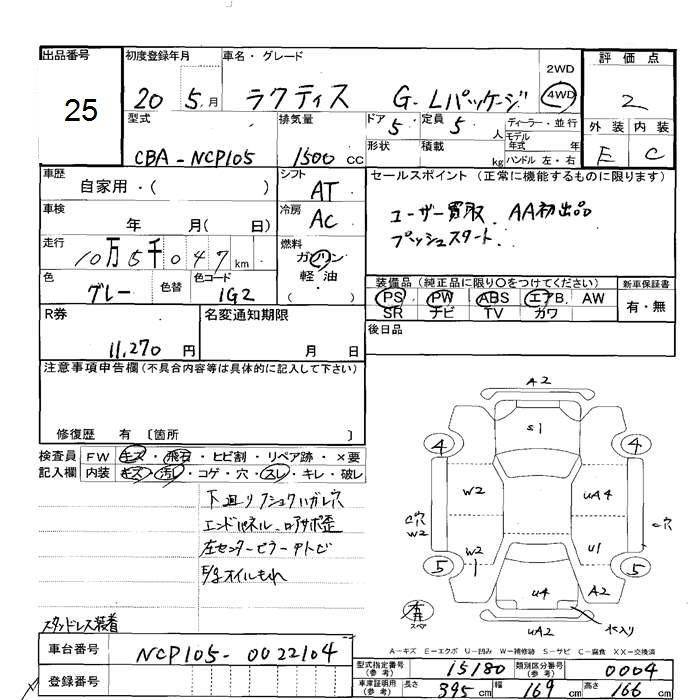 出品番号
25
初度登録年月
20 5 月
車名・グレード
ラクティス G-Lパッケージ
2WD
4WD
評価点
2
外装 内装
E C
型式
CBA-NCP105
排気量
1500 CC
ドア 5
定員 5 人
形状
積載 kg
ディーラー・並行
モデル年式 年
ハンドル 左・右
車歴
自家用・( )
車検
年 月( 日)
走行
10万5千047 km
色
グレー
色替
色コード
1G2
シフト
AT
冷房
AC
燃料
ガソリン
軽油
( )
セールスポイント(正常に機能するものに限ります)
ユーザー買取. AA初出品
プッシュスタート.
装備品(純正品に限り○をつけてください)
PS PW ABS エアB. AW
SR ナビ TV カワ
新車保証書
有・無
後日品
R券
11,270 円
名変通知期限
月 日
注意事項申告欄(不具合内容等は具体的に記入して下さい)
修復歴 有 〔箇所 〕
検査員記入欄
FW キズ・飛石・ヒビ割・リペア跡・×要
内装 キズ・汚レ・コゲ・穴・スレ・キレ・破レ
下廻り
エンドパネル
左センターピラー
オイルもれ
スタッドレス装着
A2
S1
4 4
W2 UA4
C穴
W2
W2
1
U1
C穴
5 5
U4
A2
UA2
スペア
車台番号
NCP105-0022104
登録番号
A-キズ E-エクボ U-凹み W-補修跡 S-サビ C-腐食 XX-交換済
型式指定番号(参考)
15180
類別区分番号(参考)
0004
車庫証明用(参考)
長さ 395 cm
幅 169 cm
高さ 166 cm